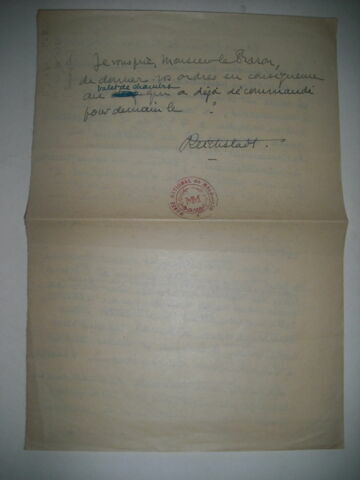 Je vous prie, Monsieur le Baron,
de donner vos ordres en conséquence
valet de chambre
au qui a déjà décommandé
pour demain le "."
Reichstadt.
MUSÉE NATIONAL DE MALMAISON
MM